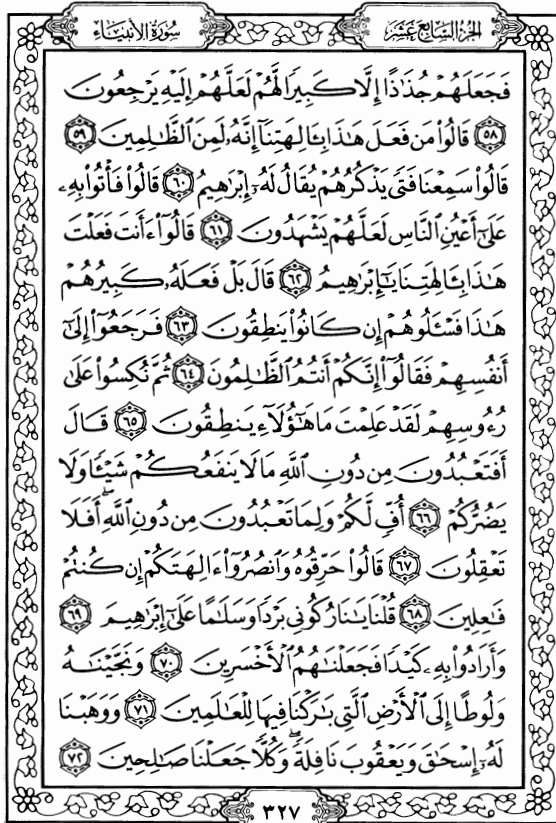 سُورَةُ الأَنبِيَاءِ
الجُزْءُ السَّابِعَ عَشَرَ
فَجَعَلَهُمْ جُذَٰذًا إِلَّا كَبِيرًا لَّهُمْ لَعَلَّهُمْ إِلَيْهِ يَرْجِعُونَ
﴿٥٨﴾ قَالُوا۟ مَن فَعَلَ هَٰذَا بِـَٔالِهَتِنَآ إِنَّهُۥ لَمِنَ ٱلظَّٰلِمِينَ ﴿٥٩﴾
قَالُوا۟ سَمِعْنَا فَتًى يَذْكُرُهُمْ يُقَالُ لَهُۥٓ إِبْرَٰهِيمُ ﴿٦٠﴾ قَالُوا۟ فَأْتُوا۟ بِهِۦ
عَلَىٰٓ أَعْيُنِ ٱلنَّاسِ لَعَلَّهُمْ يَشْهَدُونَ ﴿٦١﴾ قَالُوٓا۟ ءَأَنتَ فَعَلْتَ
هَٰذَا بِـَٔالِهَتِنَا يَٰٓإِبْرَٰهِيمُ ﴿٦٢﴾ قَالَ بَلْ فَعَلَهُۥ كَبِيرُهُمْ
هَٰذَا فَسْـَٔلُوهُمْ إِن كَانُوا۟ يَنطِقُونَ ﴿٦٣﴾ فَرَجَعُوٓا۟ إِلَىٰٓ
أَنفُسِهِمْ فَقَالُوٓا۟ إِنَّكُمْ أَنتُمُ ٱلظَّٰلِمُونَ ﴿٦٤﴾ ثُمَّ نُكِسُوا۟ عَلَىٰ
رُءُوسِهِمْ لَقَدْ عَلِمْتَ مَا هَٰٓؤُلَآءِ يَنطِقُونَ ﴿٦٥﴾ قَالَ
أَفَتَعْبُدُونَ مِن دُونِ ٱللَّهِ مَا لَا يَنفَعُكُمْ شَيْـًٔا وَلَا
يَضُرُّكُمْ ﴿٦٦﴾ أُفٍّ لَّكُمْ وَلِمَا تَعْبُدُونَ مِن دُونِ ٱللَّهِ ۖ أَفَلَا
تَعْقِلُونَ ﴿٦٧﴾ قَالُوا۟ حَرِّقُوهُ وَٱنصُرُوٓا۟ ءَالِهَتَكُمْ إِن كُنتُمْ
فَٰعِلِينَ ﴿٦٨﴾ قُلْنَا يَٰنَارُ كُونِى بَرْدًا وَسَلَٰمًا عَلَىٰٓ إِبْرَٰهِيمَ ﴿٦٩﴾
وَأَرَادُوا۟ بِهِۦ كَيْدًا فَجَعَلْنَٰهُمُ ٱلْأَخْسَرِينَ ﴿٧٠﴾ وَنَجَّيْنَٰهُ
وَلُوطًا إِلَى ٱلْأَرْضِ ٱلَّتِى بَٰرَكْنَا فِيهَا لِلْعَٰلَمِينَ ﴿٧١﴾ وَوَهَبْنَا
لَهُۥٓ إِسْحَٰقَ وَيَعْقُوبَ نَافِلَةً ۖ وَكُلًّا جَعَلْنَا صَٰلِحِينَ ﴿٧٢﴾
٣٢٧